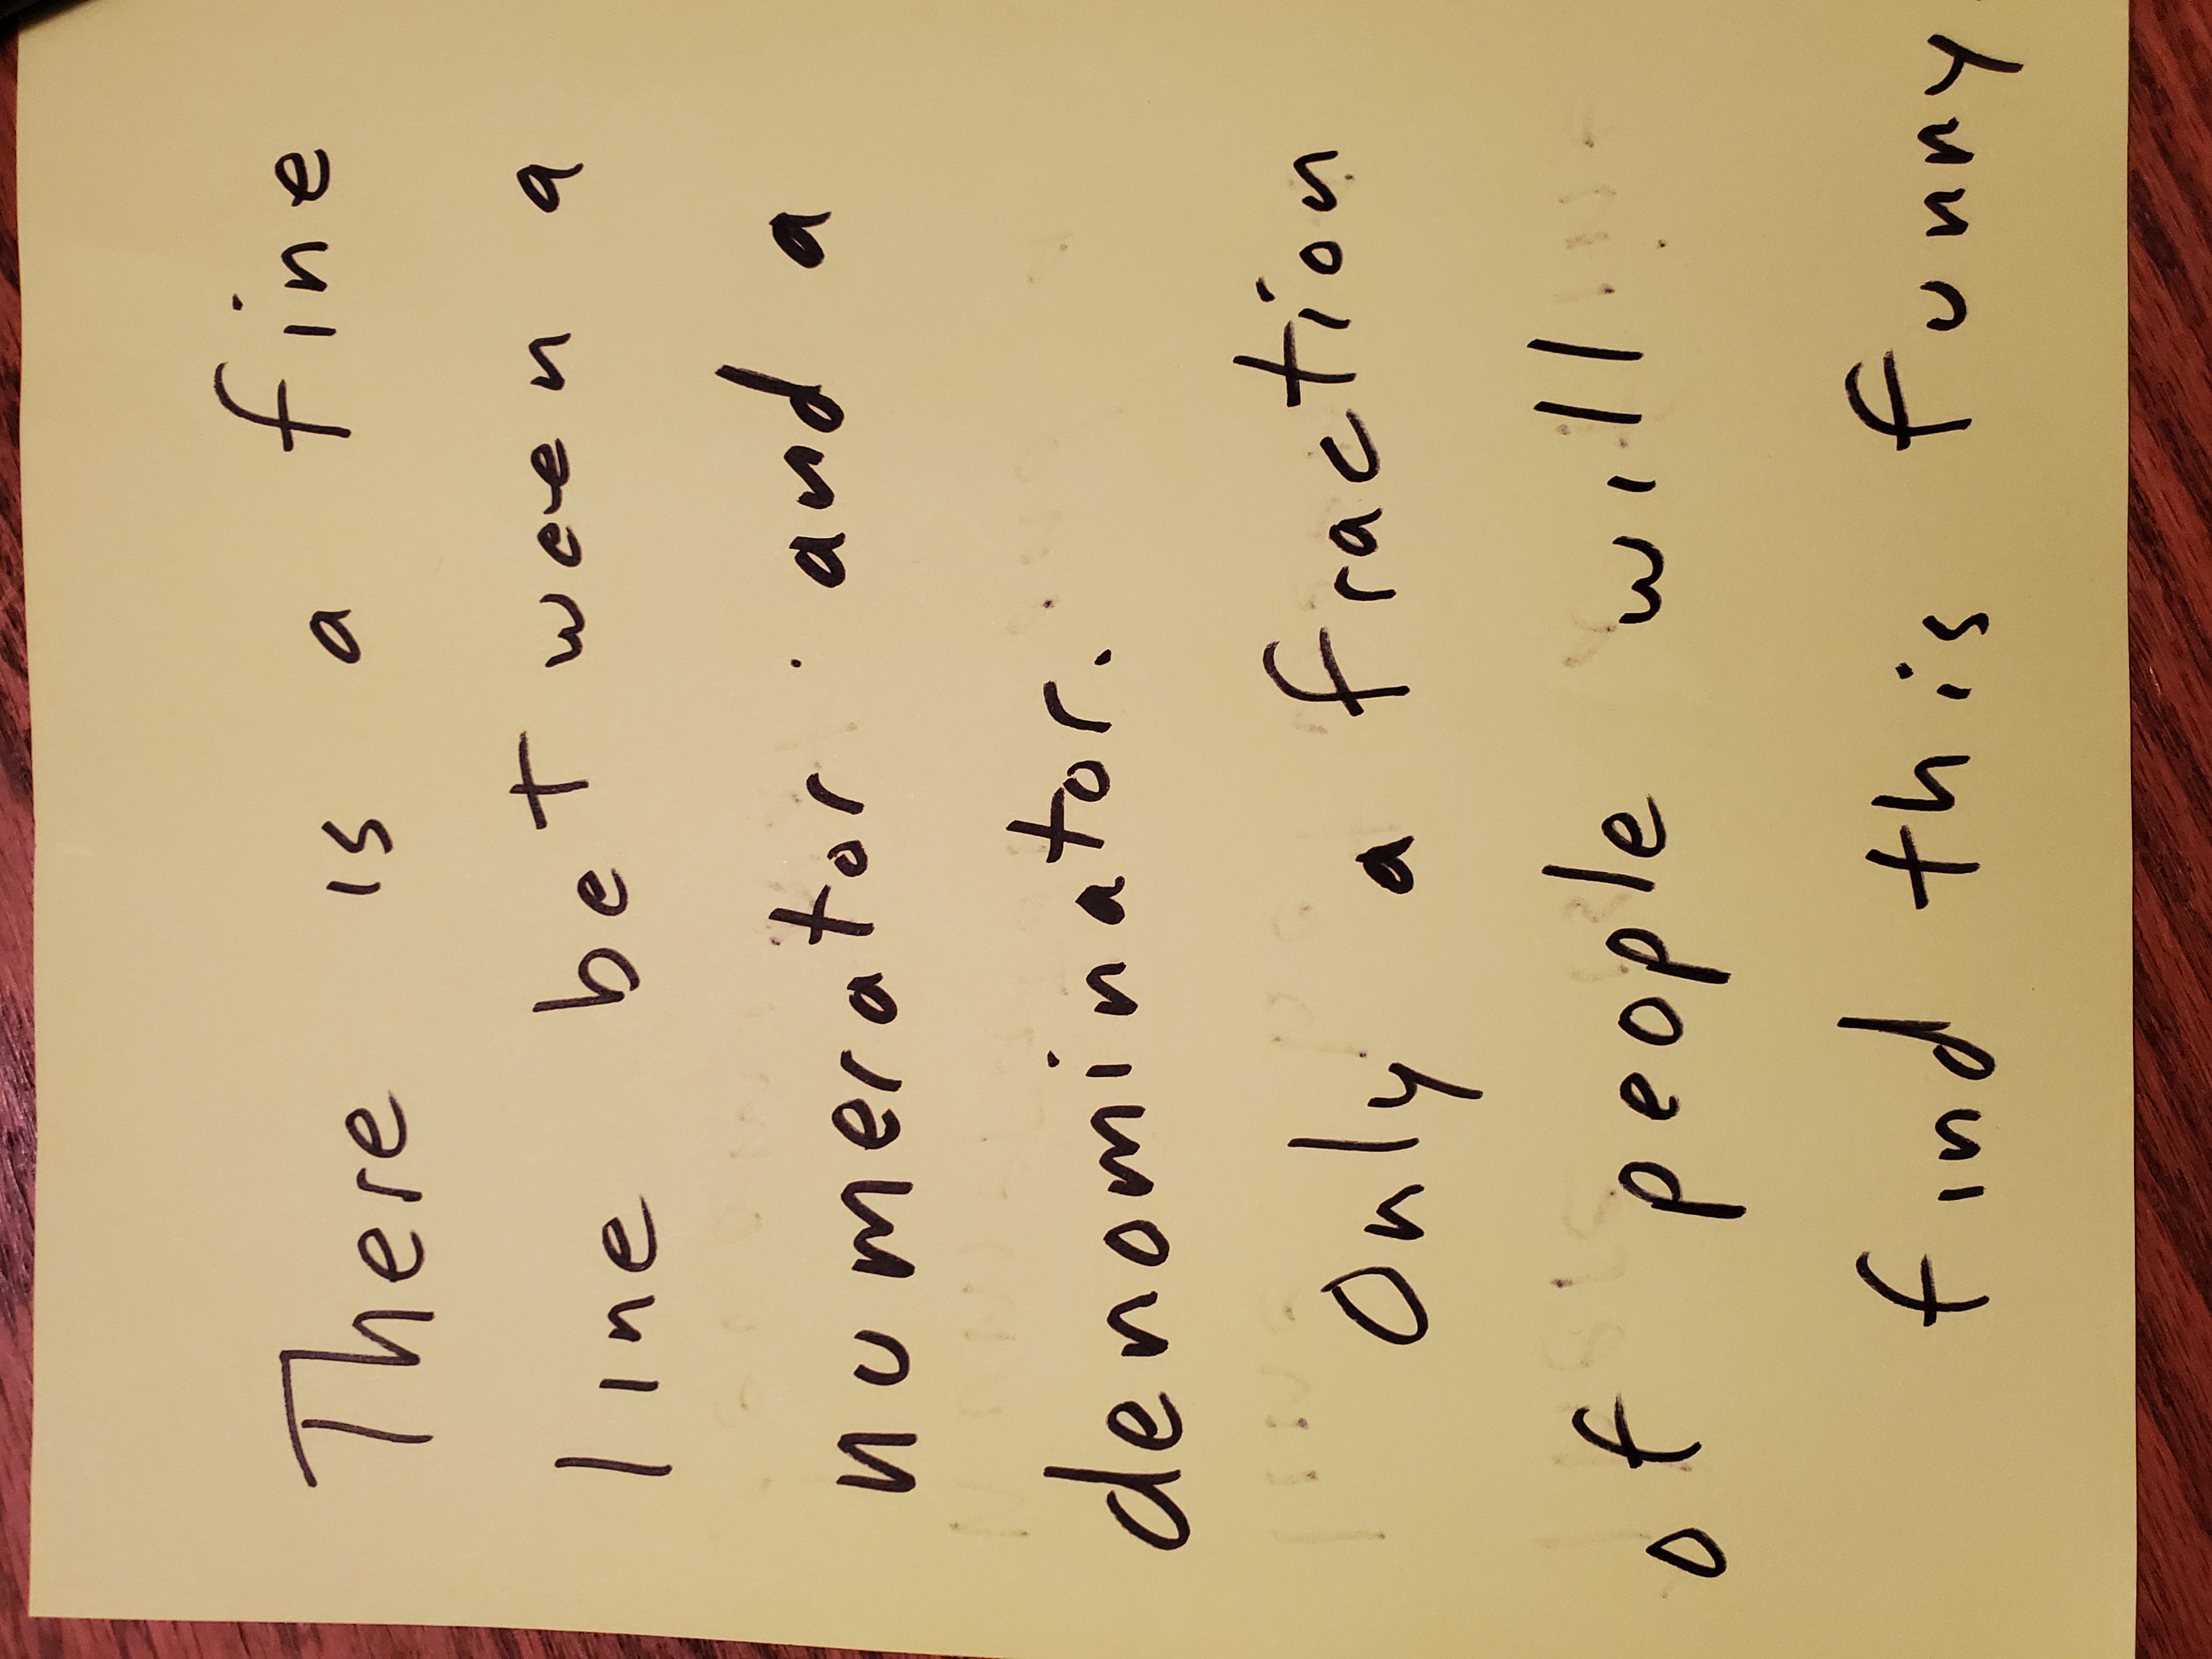 There is a fine
line between a
numerator and a
denominator.
Only a fraction
of people will
find this funny.